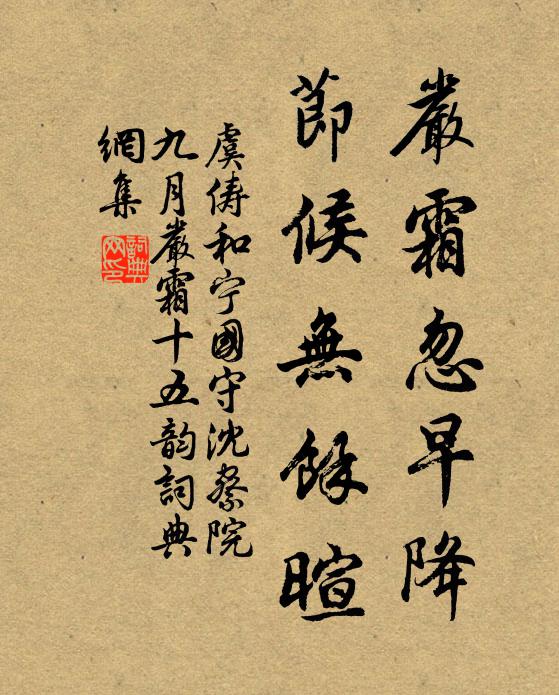 嚴霜忽早降
節候無餘暄
虞俦和宁國守沈察院
九月嚴霜十五韵詞典
網集
詞典网印